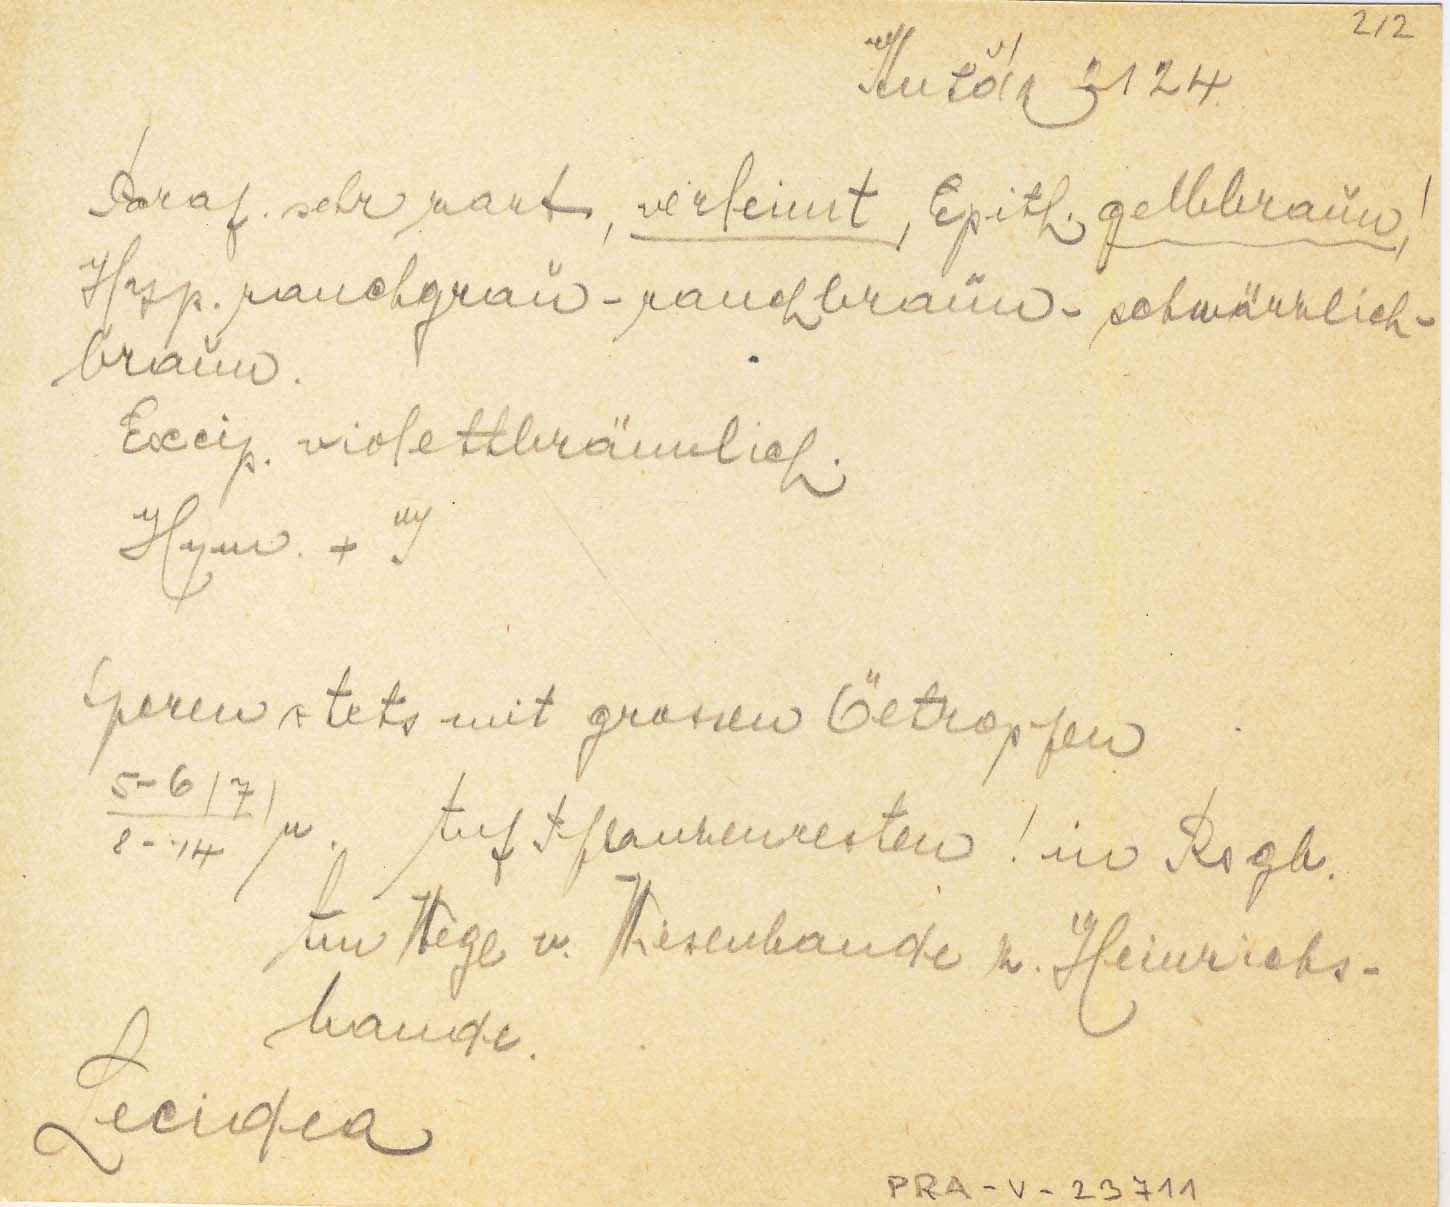 2/2
Kuták 3124.
Paraf. sehr zart, verleimt, Epith. gelbbraun!
Hyp. rauchgrau - rauchbraun - schwärzlich-
braun.
Excip. violettbräunlich.
Hym. + J
Sporen stets mit grossen Öetropfen
5-6/7/
8-14 µ. Auf Pflanzenresten! in Rsgb.
Am Wege v. Wiesenbaude z. Heinrichs-
baude.
Lecidea
PRA-V-23711